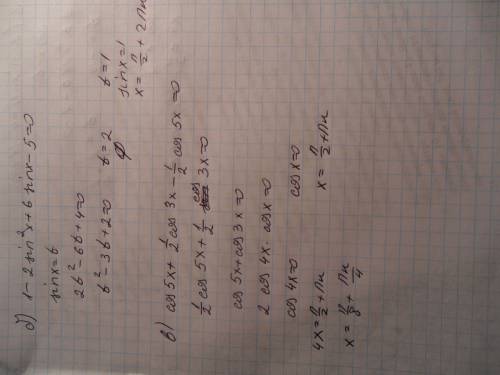 б) 1-2sin²x+6sinx-5=0
sinx=t
2t²-6t+4=0
t²-3t+2=0 t=2 t=1
∅ sinx=1
x=π/2+2πn
в) cos5x+1/2cos3x-1/2cos5x=0
1/2cos5x+1/2cos3x=0
cos5x+cos3x=0
2cos4x·cosx=0
cos4x=0 cosx=0
4x=π/2+πn x=π/2+πn
x=π/8+πn/4